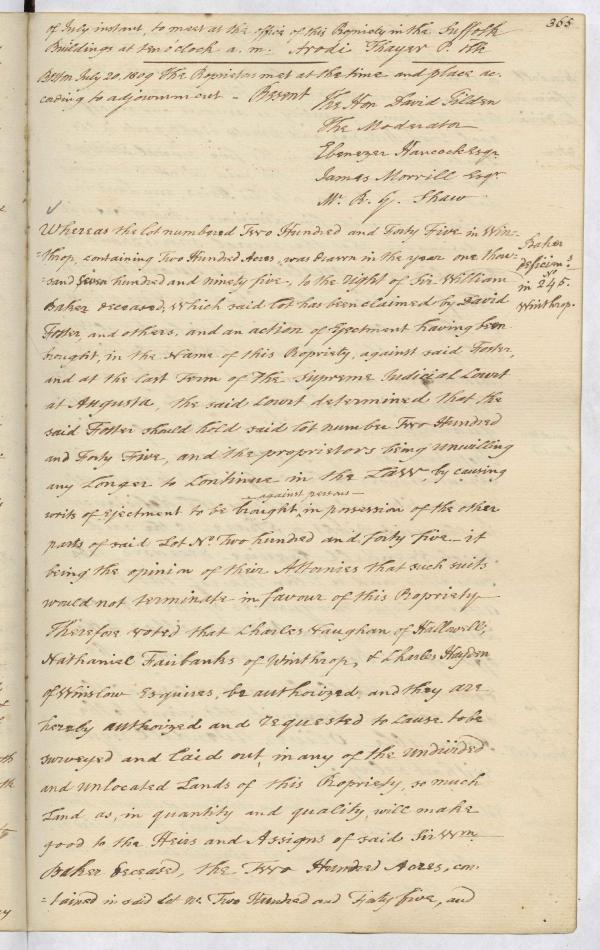 365
of July instant, to meet at the office of this Propriety in the Suffolk
Buildings at ten o'clock a. m. Arodi Thayer P. Clk
Boston July 20. 1809 The Proprietors met at the time and place ac-
cording to adjournment - Present
The Hon David Tilden
The Moderator
Ebenezer Hancock Esqr
James Morrill Esqr
Mr R. G. Shaw
Whereas the lot numbered Two Hundred and Forty Five in Win-
=throp, containing Two Hundred Acres, was drawn in the year one thou-
sand seven hundred and ninety five, to the right of Sir William
Baker deceased, Which said lot has been claimed by David
Foster, and others, and an action of Ejectment having been
brought, in the Name of this Propriety, against said Foster,
and at the last Term of The Supreme Judicial Court
at Augusta, the said Court determined that the
said Foster should hold said lot number Two Hundred
and Forty Five, and the proprietors being unwilling
any Longer to Continue in the Law, by causing
writs of Ejectment to be brought against persons in possession of the other
parts of said Lot No Two hundred and forty five - it
being the opinion of their Attornies that such suits
would not terminate in favour of this Propriety
Therefore voted that Charles Vaughan of Hallowell,
Nathaniel Fairbanks of Winthrop, & Charles Hayden
of Winslow Esquires, be authorized and they are
hereby authorized and requested to cause to be
surveyed and laid out, in any of the undivided
and unlocated Lands of this Propriety, so much
Land as, in quantity and quality, will make
good to the Heirs and Assigns of said Sir Wm
Baker deceased, the Two Hundred Acres, con
=tained in said lot No Two Hundred and Forty five, and
Baker
in No 245.
Winthrop.